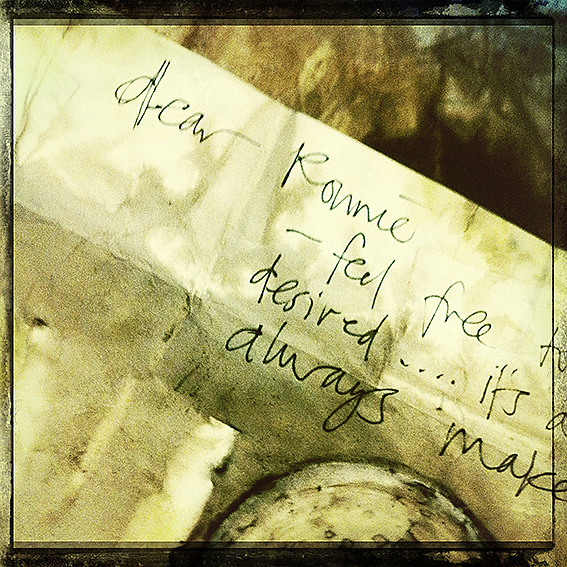 dear Ronnie
- feel free to
desired .... it's a
always make